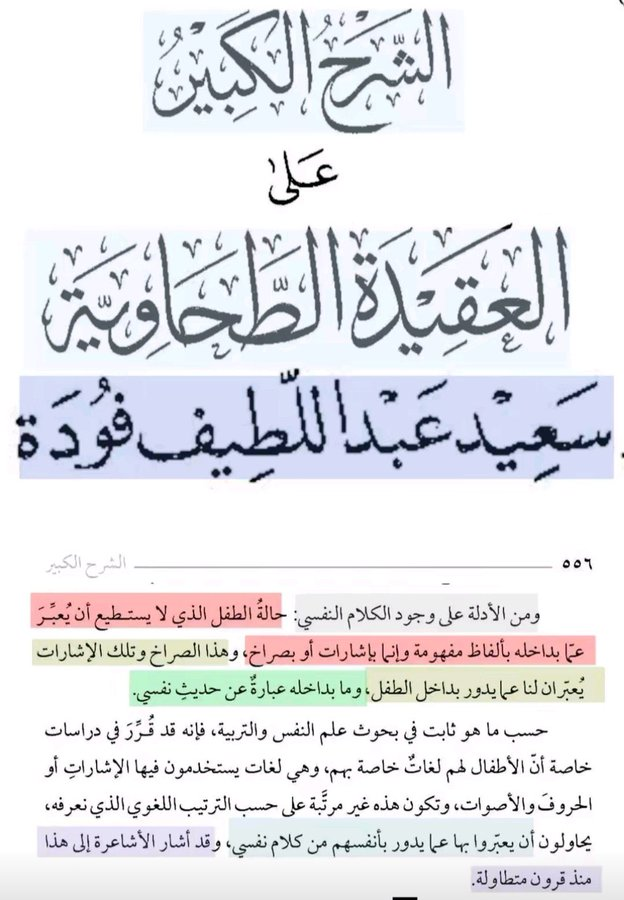 الشَّرْحُ الكَبِيْرُ
عَلىٰ
العَقِيْدَةِ الطَّحَاوِيَّةِ
سَعِيْد عَبْد اللَّطِيف فُودَة
٥٥٦ الشرح الكبير
ومن الأدلة على وجود الكلام النفسي: حالةُ الطفل الذي لا يستطيع أن يُعبِّرَ
عمّا بداخله بألفاظ مفهومة وإنما بإشارات أو بصراخ، وهذا الصراخ وتلك الإشارات
يُعبّران لنا عما يدور بداخل الطفل، وما بداخله عبارةٌ عن حديثٍ نفسي.
حسب ما هو ثابت في بحوث علم النفس والتربية، فإنه قد قُرِّرَ في دراسات
خاصة أنّ الأطفال لهم لغاتٌ خاصة بهم، وهي لغات يستخدمون فيها الإشاراتِ أو
الحروفَ والأصوات، وتكون هذه غير مرتَّبة على حسب الترتيب اللغوي الذي نعرفه،
يحاولون أن يعبّروا بها عما يدور بأنفسهم من كلام نفسي، وقد أشار الأشاعرة إلى هذا
منذ قرون متطاولة.